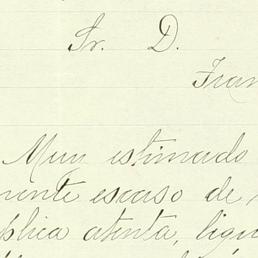 Sr. D.
Fran
Muy estimado
mente escaso de
plica atenta, ligu